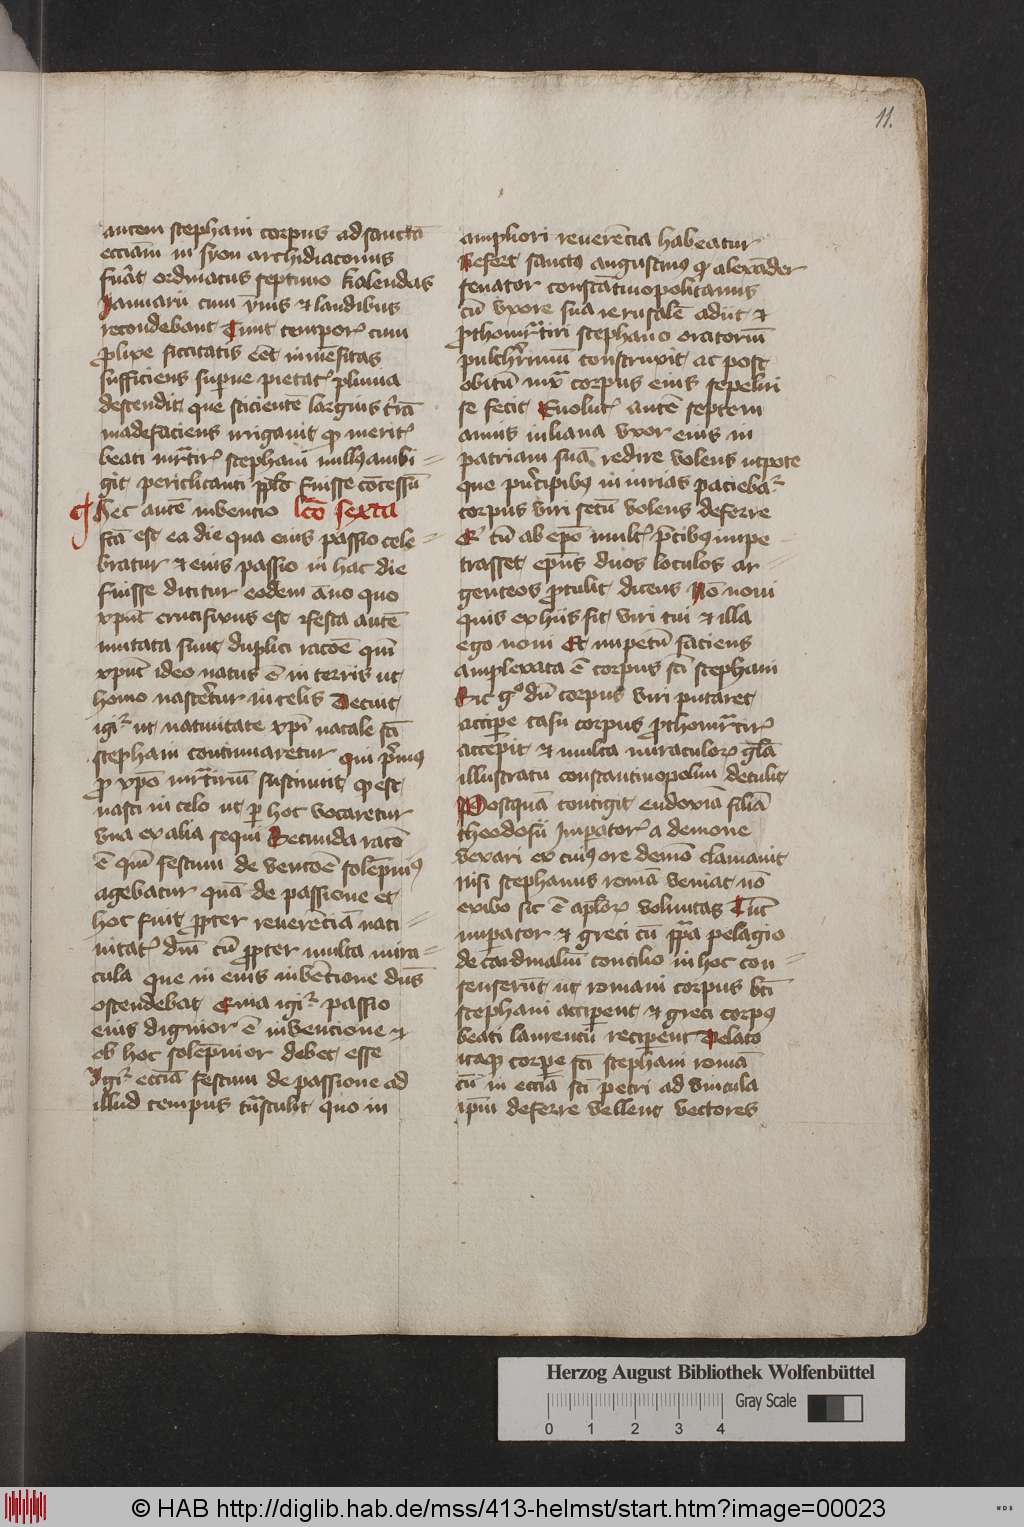 11.
autem stephani corpus ad sanctā
eccīam in syon archidiaconus
fuāt ordinatus septimo kalendas
Januarii cum ymīs et laudibus
recondebant Tunc temporꝫ cum
plixe siccitatis eēt inmēsitas
sufficiens supne pietatꝫ pluuia
descendit que sicientē largius trā
madefaciens irrigauit qꝫ meritꝫ
beati mr̄tirꝫ stephani nulli ambi
git periclitanti pplo fuisse cōcessū
Hec autē inuencio lcō sexta
fcā est ea die qua eius passio cele
bratur et eius passio in hac die
fuisse dicitur eodem āno quo
xpūs crucifixus est festa autē
mutata sunt duplici racōe qm̄
xpūs ideo natus ē in terris ut
homo nascetur in celis Decuit
igiꝫ ut natiuitate xpī natale scī
stephani continuaretur qui pimꝰ
p xpō mr̄tiriū sustinuit qꝫ est
nasci in celo ut p hoc vocaretur
vna ex alia sequi Secunda racō
ē qm̄ festum de vencōe solēpniꝰ
agebatur quā de passione et
hoc fuit ppter reuerēciā nati
uitatꝫ dn̄i tū ppter multa mira
cula que in eius inuēcione dūs
ostendebat Et quia igiꝫ passio
eius dignior ē inuencione et
ob hoc solēpnior debet esse
Igiꝫ eccīa festum de passione ad
illud tempus trāstulit quo in
ampliori reuerēcia habeatur
Refert sanctꝰ augustinꝰ qꝫ alexāder
senator constātinopolitanus
cū vxore sua ierusalē adiit et
pthomr̄tiri stephano oratoriū
pulchrimū construxit ac post
obitū iux̄ corpus eius sepeliri
se fecit Euolutꝫ autē septem
annis iuliana vxor eius in
patriam suā redire volens utpote
que pncipibꝰ iniurias paciebaꝫ
corpus viri secū volens deferre
Et cū ab epō multꝫ pcibꝰ impe
trasset epūs duos loculos ar
genteos ptulit dicens Nō noui
quis ex hiis sit viri tui et illa
ego noui Et impetū faciens
amplexata ē corpus scī stephani
Sic gͦ dū corpus viri putaret
accipe casu corpus pthomr̄tirꝫ
accepit et multa miraculorꝫ gl̄a
illustratū constantinopolim detulit
Postquā contigit eudoxiā filiā
theodosii Imperatorꝫ a demone
vexari ex cuiꝰ ore demō clamauit
nisi stephanus romā veniat nō
exibo sic ē aplorꝫ voluntas Tūc
imperator et greci cū ppā pelagio
de cardinaliū concilio in hoc con
senserūt ut romani corpus bti
stephani acciperent et greci corpꝰ
beati laurencii reciperent Delato
itaqꝫ corpe scī stephani romā
cū in eccīā scī petri ad vincula
ipm̄ deferre vellent vectores
Herzog August Bibliothek Wolfenbüttel
Gray Scale
0 1 2 3 4
© HAB http://diglib.hab.de/mss/413-helmst/start.htm?image=00023
WDB